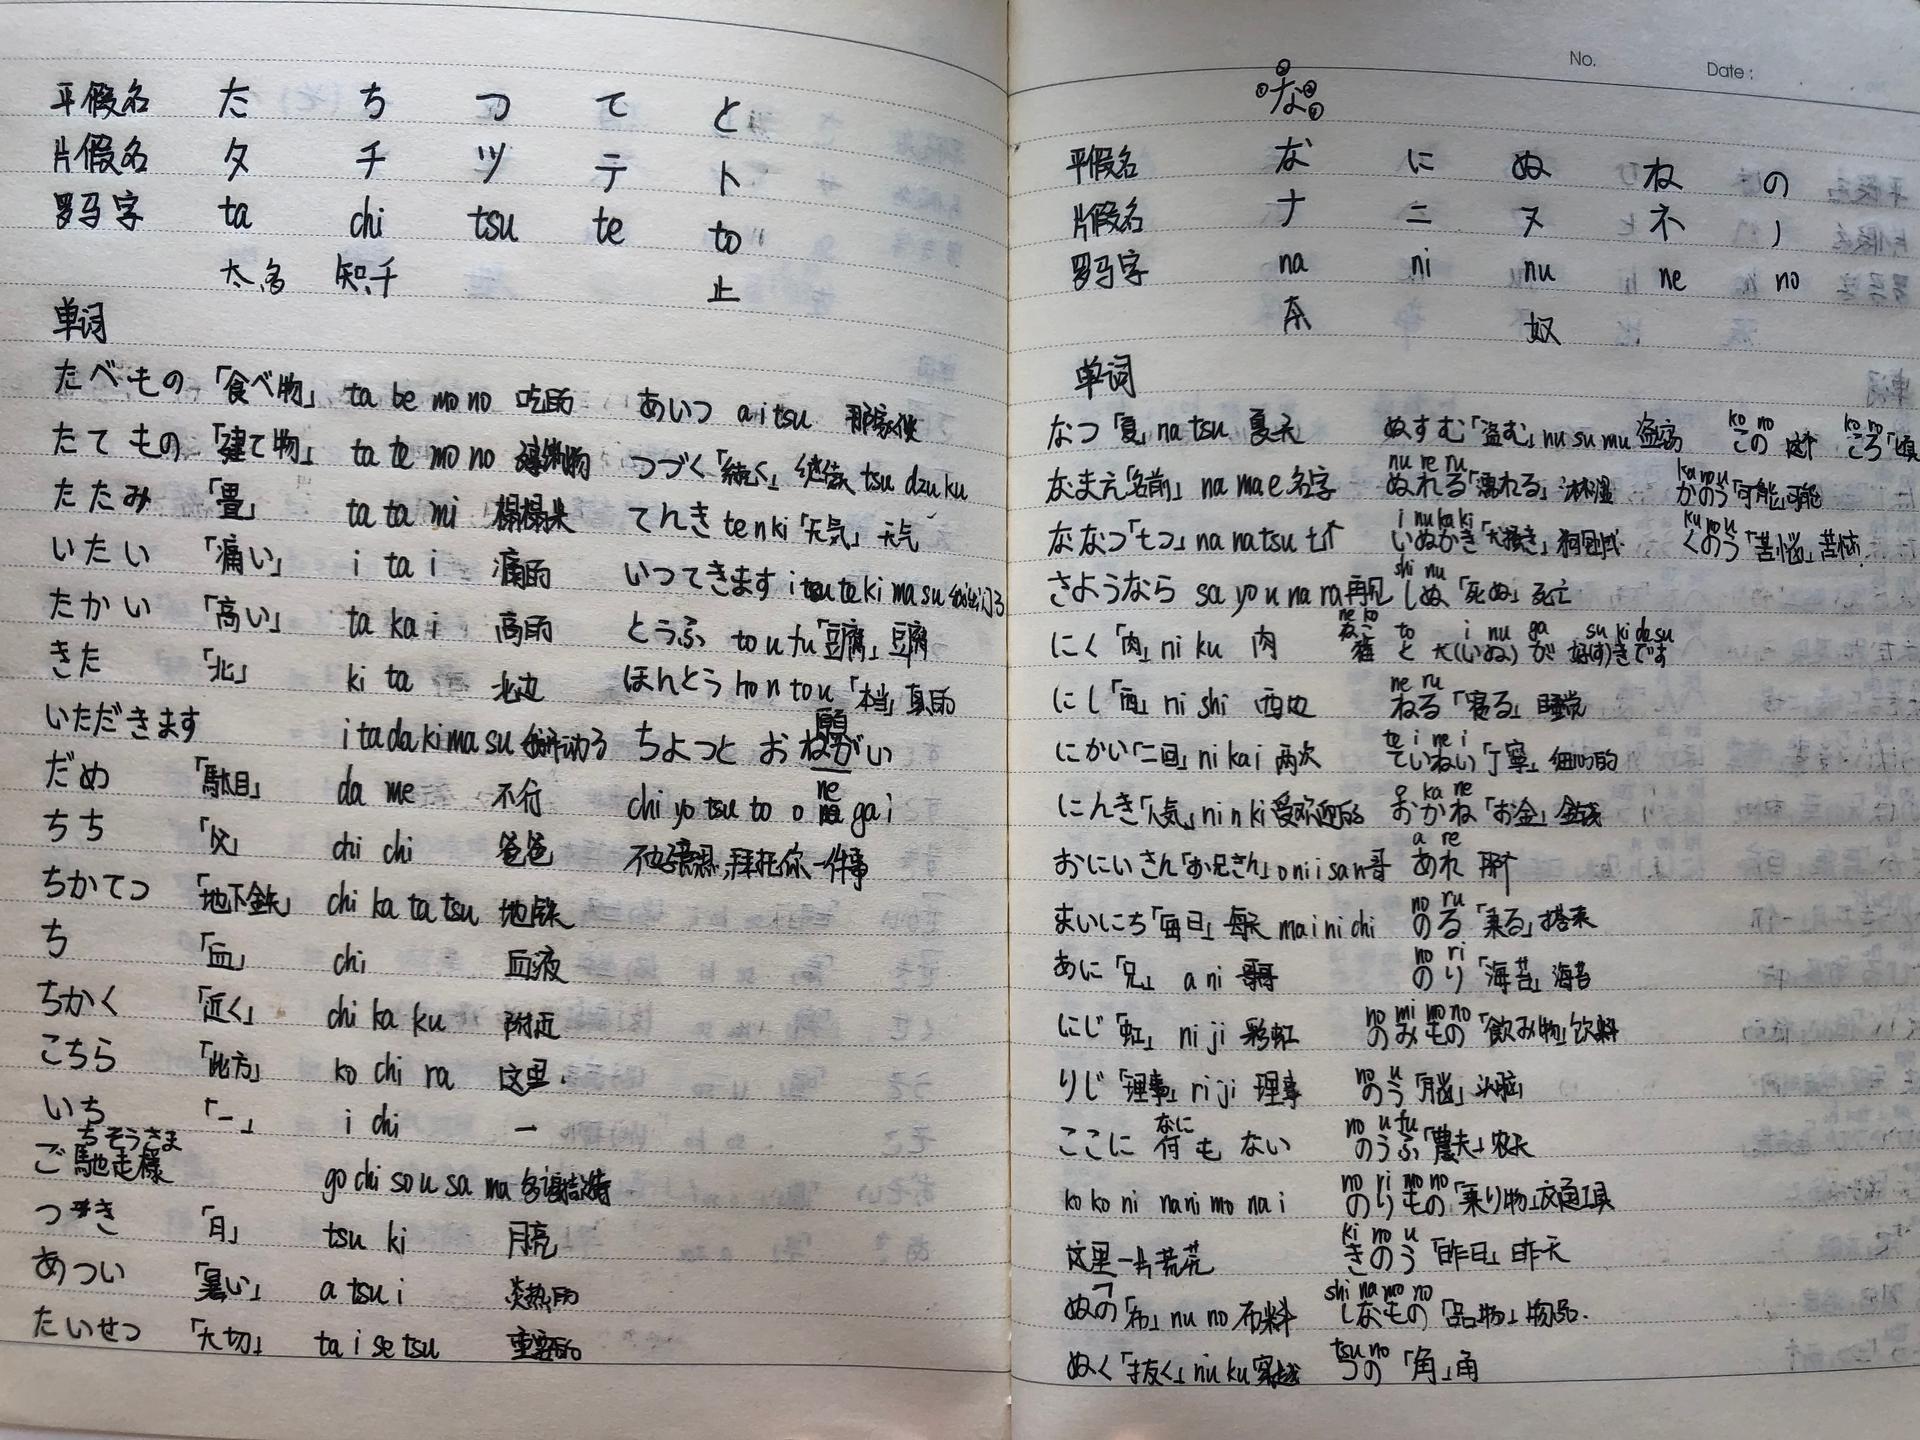 平假名 た ち つ て と
片假名 タ チ ツ テ ト
罗马字 ta chi tsu te to
太多 知千 止
单词
たべもの 「食べ物」 ta be mo no 吃的
たてもの 「建て物」 ta te mo no 建筑物
たたみ 「畳」 ta ta mi 榻榻米
いたい 「痛い」 i ta i 痛的
たかい 「高い」 ta ka i 高的
きた 「北」 ki ta 北边
いただきます i ta da ki ma su 我开动了
だめ 「駄目」 da me 不行
ちち 「父」 chi chi 爸爸
ちかてつ 「地下鉄」 chi ka ta tsu 地铁
ち 「血」 chi 血液
ちかく 「近く」 chi ka ku 附近
こちら 「此方」 ko chi ra 这里.
いち 「一」 i chi 一
ちそうさま
ご馳走様 go chi so u sa ma 多谢款待
つき 「月」 tsu ki 月亮
あつい 「暑い」 a tsu i 炎热的
たいせつ 「大切」 ta i se tsu 重要的
あいつ a i tsu 那家伙
つづく「続く」 继续 tsu dzu ku
てんき te n ki 「天気」 天气
いつてきます i tsu te ki ma su 我出门了
とうふ to u fu「豆腐」豆腐
ほんとう ho n to u 「本当」真的
願
ちよつと おねがい
ne
chi yo tsu to o gai
不好意思,拜托你一件事
No. Date:
な
平假名 な に ぬ ね の
片假名 ナ ニ ヌ ネ ノ
罗马字 na ni nu ne no
奈 奴
单词
なつ「夏」na tsu 夏天
なまえ「名前」 na ma e 名字
ななつ「七つ」na na tsu 七个
さようなら sa yo u na ra 再见
にく「肉」ni ku 肉
にし「西」ni shi 西边
にかい「二回」ni kai 两次
にんき「人気」ni n ki 受欢迎的
おにいさん「お兄さん」o ni i san 哥
まいにち「毎日」每天 mai ni chi
あに「兄」 a ni 哥哥
にじ「虹」 ni ji 彩虹
りじ「理事」ri ji 理事
なに
ここに 何も ない
ko ko ni na ni mo na i
这里一片荒芜
ぬの「布」nu no 布料
ぬく「抜く」nu ku 穿越
ぬすむ「盗む」nu su mu 盗窃
nu re ru
ぬれる「濡れる」淋湿
i nu ka ki
いぬかき「犬掻き」狗刨式
shi nu
しぬ「死ぬ」死亡
ne ko to i nu ga su ki de su
ねこ
猫 と 犬(いぬ) が 好(す)きです
ne ru
ねる「寝る」睡觉
te i ne i
ていねい「丁寧」细心的
o ka ne
おかね「お金」金钱
a re
あれ 那个
no ru
のる「乗る」搭乘
no ri
のり「海苔」海苔
no mi mo no
のみもの「飲み物」饮料
no u
のう「脳」头脑
no u fu
のうふ「農夫」农夫
no ri mo no
のりもの「乗り物」交通工具
ki no u
きのう「昨日」昨天
shi na mo no
しなもの「品物」物品.
tsu no
つの「角」角
ko no
この 这个
ko ro
ころ「頃
ka no u
かのう「可能」可能
ku no u
くのう「苦悩」苦恼.